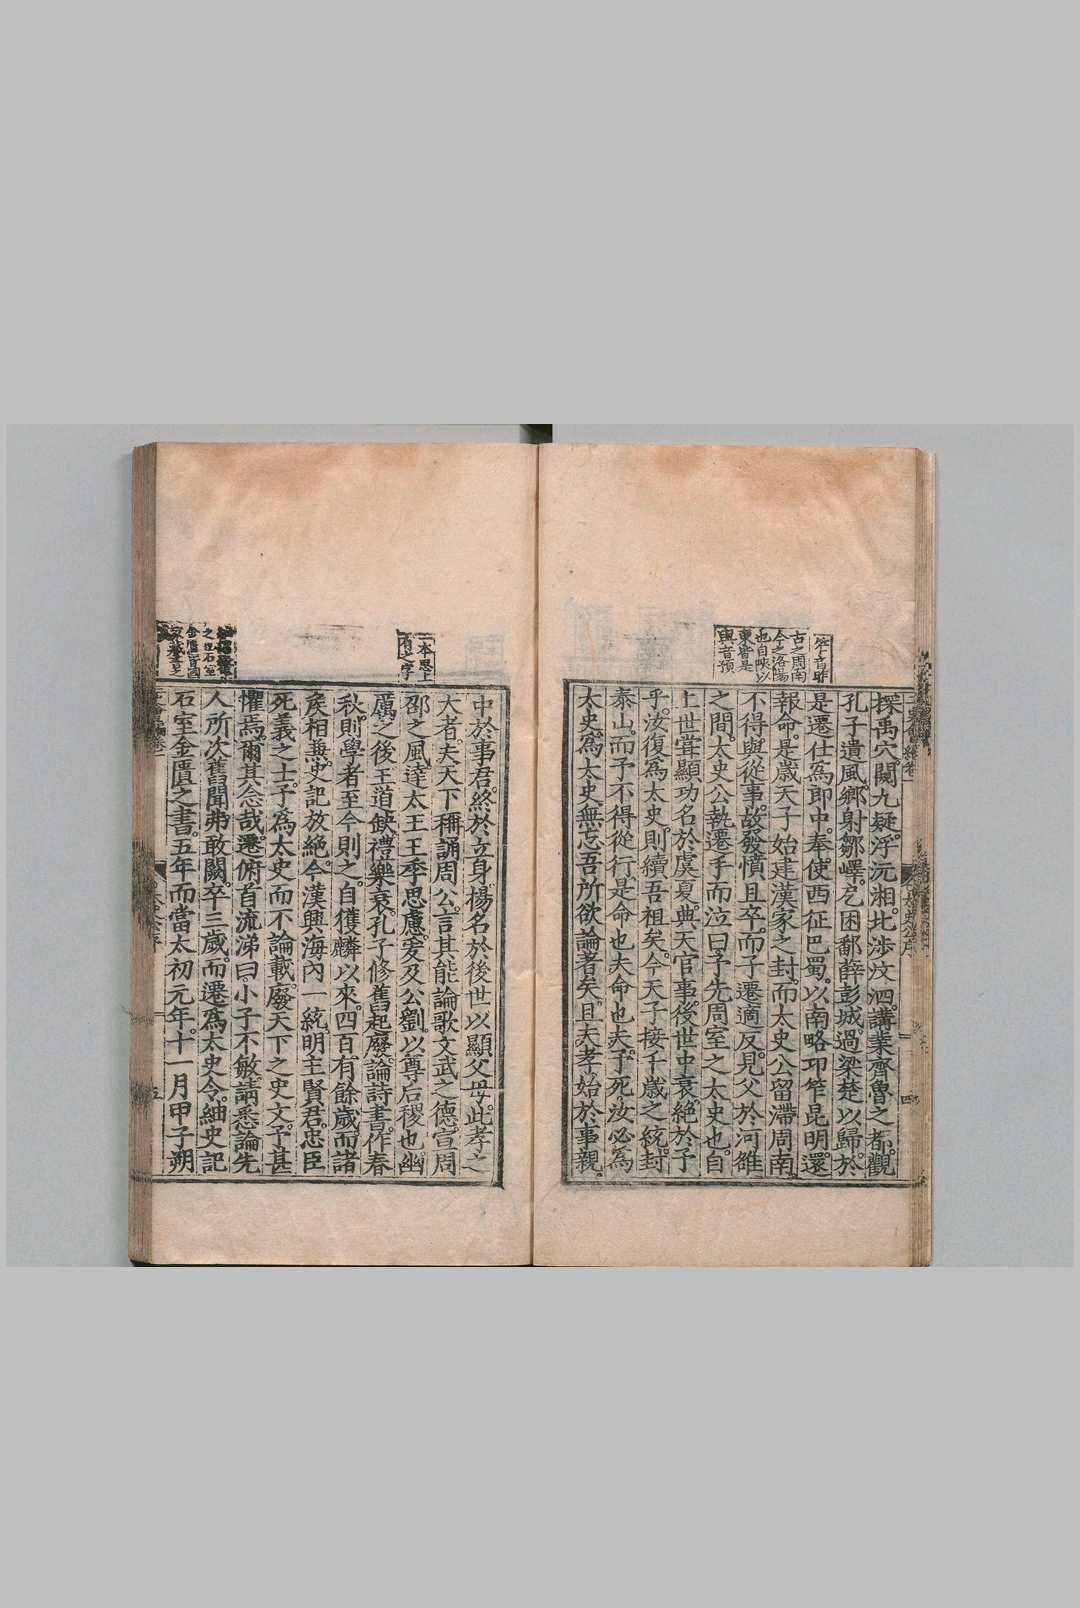 筰音昨
古之周南
今之洛陽
也自陜以
東皆是
與音預
探禹穴闚九疑浮沅湘北涉汶泗講業齊魯之都觀
孔子遺風鄉射鄒嶧戹困鄱薛彭城過梁楚以歸於
是遷仕爲郎中奉使西征巴蜀以南略邛筰昆明還
報命是歲天子始建漢家之封而太史公留滯周南
不得與從事故發憤且卒而子遷適反見父於河雒
之間太史公執遷手而泣曰予先周室之太史也自
上世嘗顯功名於虞夏典天官事後世中衰絶於予
乎汝復爲太史則續吾祖矣今天子接千歲之統封
泰山而予不得從行是命也夫命也夫予死汝必爲
太史爲太史無忘吾所欲論著矣且夫孝始於事親
太史公序
四
一本思上
有之字
之曰石室
金匱皆國
家藏書之
中於事君終於立身揚名於後世以顯父母此孝之
大者夫天下稱誦周公言其能論歌文武之德宣周
邵之風達太王王季思慮爰及公劉以尊后稷也幽
厲之後王道缺禮樂衰孔子修舊起廢論詩書作春
秋則學者至今則之自獲麟以來四百有餘歲而諸
侯相兼史記放絶今漢興海内一統明主賢君忠臣
死義之士予爲太史而不論載廢天下之史文予甚
懼焉爾其念哉遷俯首流涕曰小子不敏請悉論先
人所次舊聞弗敢闕卒三歲而遷爲太史令紬史記
石室金匱之書五年而當太初元年十一月甲子朔
五